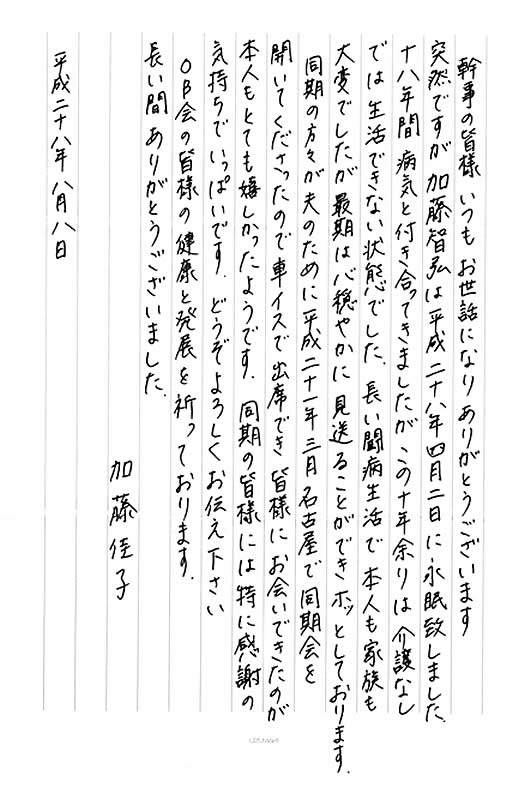 幹事の皆様 いつも お世話になり ありがとうございます
突然ですが 加藤智弘は 平成二十八年四月二日に永眠致しました.
十八年間 病気と付き合ってきましたが この十年余りは 介護なし
では 生活できない状態でした. 長い闘病生活で 本人も家族も
大変でしたが 最期は心穏やかに 見送ることができ ホッとしております.
同期の方々が 夫のために 平成二十一年三月 名古屋で 同期会を
開いてくださったので 車イスで 出席でき 皆様に お会いできたのが
本人もとても嬉しかったようです. 同期の皆様には 特に感謝の
気持ちで いっぱいです. どうぞよろしくお伝え下さい
OB会の皆様の 健康と発展を 祈っております.
長い間ありがとうございました.
加藤佳子
平成二十八年八月八日